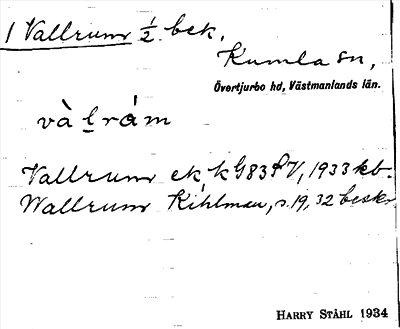 1 Vallrum ½ bek.
Kumla sn,
Övertjurbo hd, Västmanlands län.
và l̲ rám
Vallrum ek, k G83 V, 1933 kb.
Wallrum Kihlman, s. 19, 32 beskr
HARRY STÅHL 1934